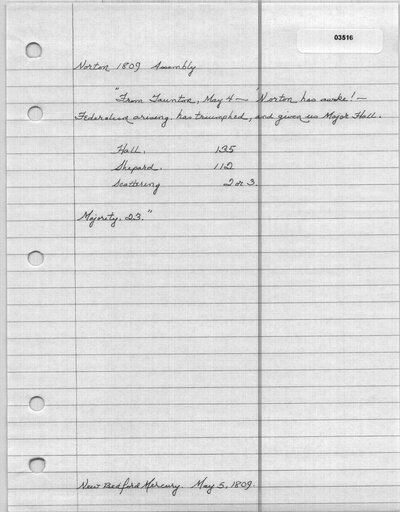 03516
Norton 1809 Assembly
"From Taunton, May 4 — 'Norton has awoke! —
Federalism arising, has triumphed, and given us Major Hall.
Hall. 135
Shepard. 112
Scattering 2 or 3.
Majority. 23."
New Bedford Mercury. May 5, 1809.